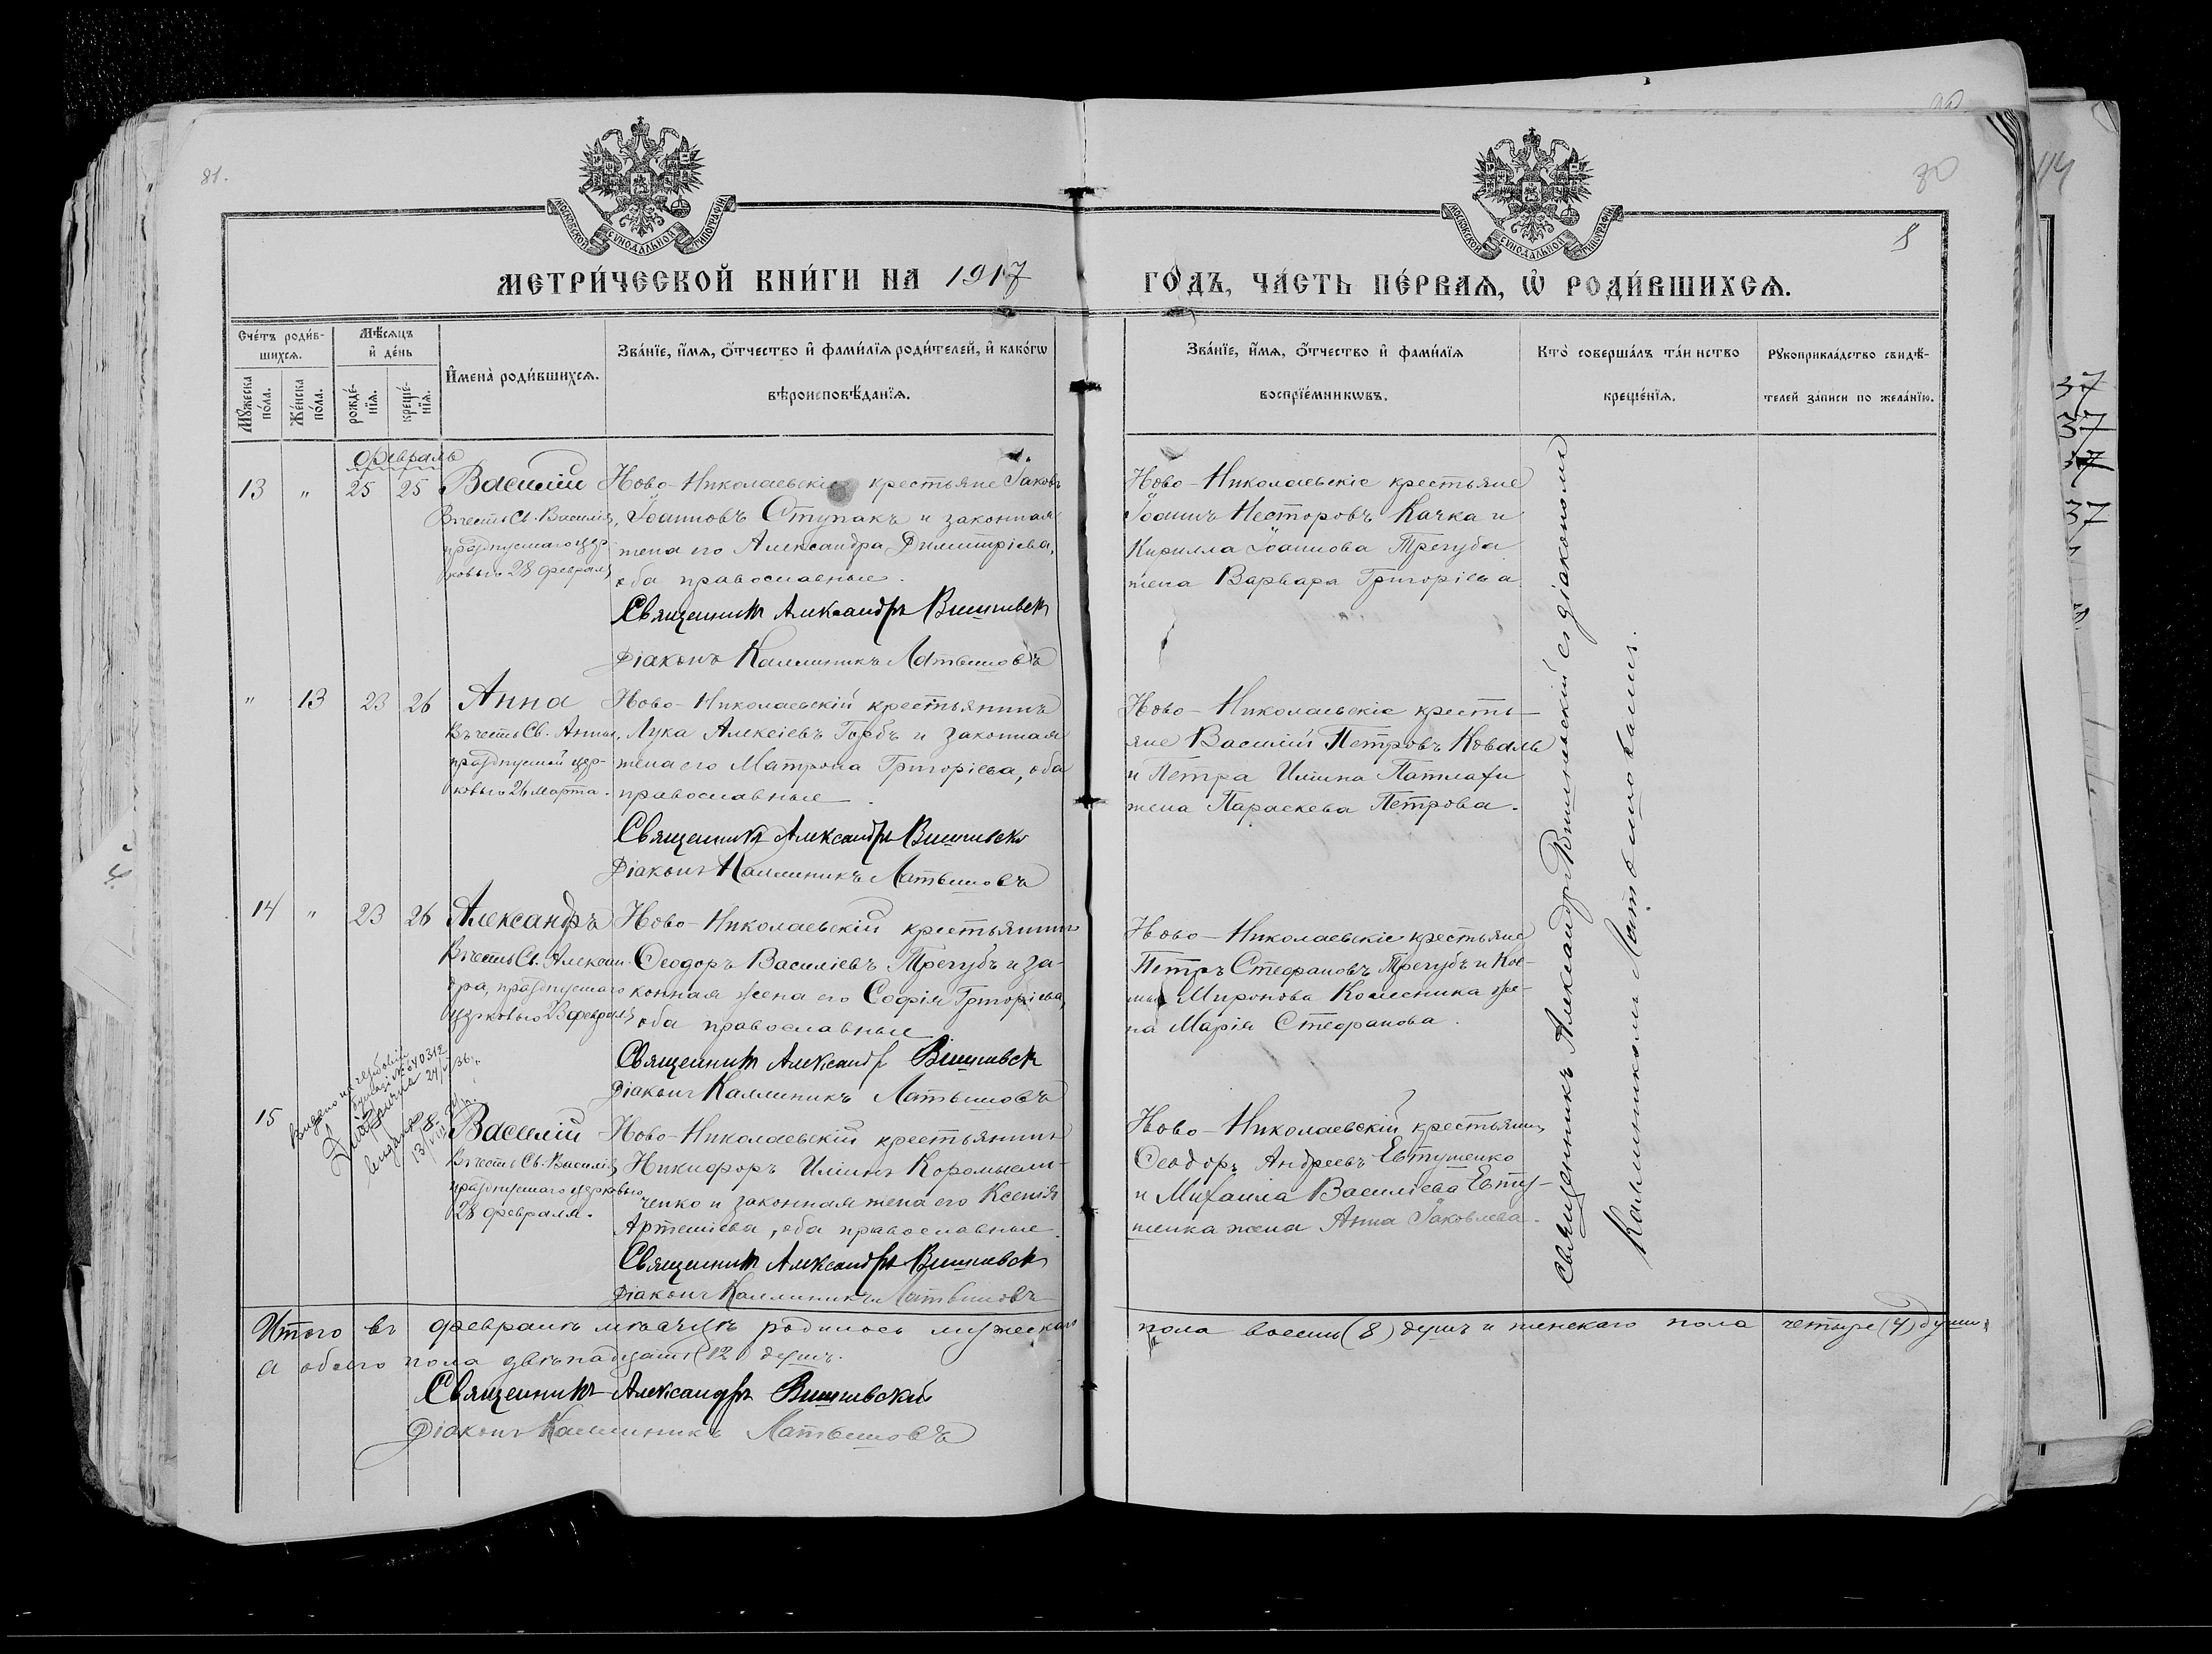 81.
30
8
МОСКОВСКОЙ СУНОДАЛЬНОЙ ТИПОГРАФІИ
МОСКОВСКОЙ СУНОДАЛЬНОЙ ТИПОГРАФІИ
МЕТРИ́ЧЕСКОЙ КНИ́ГИ НА 1917
ГО́ДЪ, ЧА́СТЬ ПЕ́РВАѦ, Ѡ҆ РОДИ́ВШИХСѦ.
Сче́тъ роди́в-
шихсѧ.
Мѣ́сѧцъ
и҆ де́нь
Мꙋ́жеска
по́ла.
Же́нска
по́ла.
рожде́-
нїѧ.
креще́-
нїѧ.
И҆мена̀ роди́вшихсѧ.
Зва́нїе, и҆́мѧ, о҆́тчество и҆ фами́лїѧ роди́телей, и҆ како́гѡ
вѣроисповѣ́данїѧ.
Зва́нїе, и҆́мѧ, о҆́тчество и҆ фами́лїѧ
воспрїе́мникѡвъ.
Кто̀ соверша́лъ та́инство
креще́нїѧ.
Рꙋкоприкла́дство свидѣ́-
телей за́писи по жела́нїю.
Февраль
13 " 25 25 Василій
Въ честь Св. Василія,
празднуемаго цер-
ковью 28 февраля
Ново-Николаевскіе крестьяне Іаковъ
Іоанновъ Ступакъ и законная
жена его Александра Димитріева,
оба православные.
Священникъ Александръ Вишневск
Діаконъ Каллиникъ Латышовъ
Ново-Николаевскіе крестьяне
Іоаннъ Несторовъ Качка и
Кирилла Іоаннова Трегуба
жена Варвара Григоріева
" 13 23 26 Анна
Въ честь Св. Анны,
празднуемой цер-
ковью 26 Марта.
Ново-Николаевскій крестьянинъ
Лука Алексіевъ Горбъ и законная
жена его Матрона Григоріева, оба
православные.
Священникъ Александръ Вишневск
Діаконъ Каллиникъ Латышовъ
Ново-Николаевскіе кресть-
яне Василій Петровъ Коваль
и Петра Иліина Патлахи
жена Параскева Петрова.
14 " 23 26 Александръ
Въ честь Св. Алексан-
дра, празднуемаго
церковью 23 февраля
Ново-Николаевскій крестьянинъ
Ѳеодоръ Василіевъ Трегубъ и за-
конная жена его Софія Григоріева,
оба православные
Священникъ Александръ Вишневск
Діаконъ Каллиникъ Латышовъ
Ново-Николаевскіе крестьяне
Петръ Стефановъ Трегубъ и Кос-
мы Миронова Колесника же-
на Марія Стефанова.
15 Василій
Въ честь Св. Василія
празднуемаго церковью
28 февраля.
Ново-Николаевскій крестьянинъ
Никифоръ Иліинъ Коромысли-
ченко и законная жена его Ксенія
Артеміева, оба православные.
Священникъ Александръ Вишневск
Діаконъ Каллиникъ Латышовъ
Ново-Николаевскій крестьянинъ
Ѳеодоръ Андреевъ Евтушенко
и Михаила Василіева Евту-
шенка жена Анна Іаковлева.
Священникъ Александръ Вишневскій съ діакономъ
Каллиникомъ Латышовымъ.
Итого въ февралѣ мѣсяцѣ родилось мужескаго
пола восемь (8) душъ и женскаго пола четыре (4) души,
а обоего пола двѣнадцать (12) душъ.
Священникъ Александръ Вишневскій
Діаконъ Каллиникъ Латышовъ
37
37
37
37